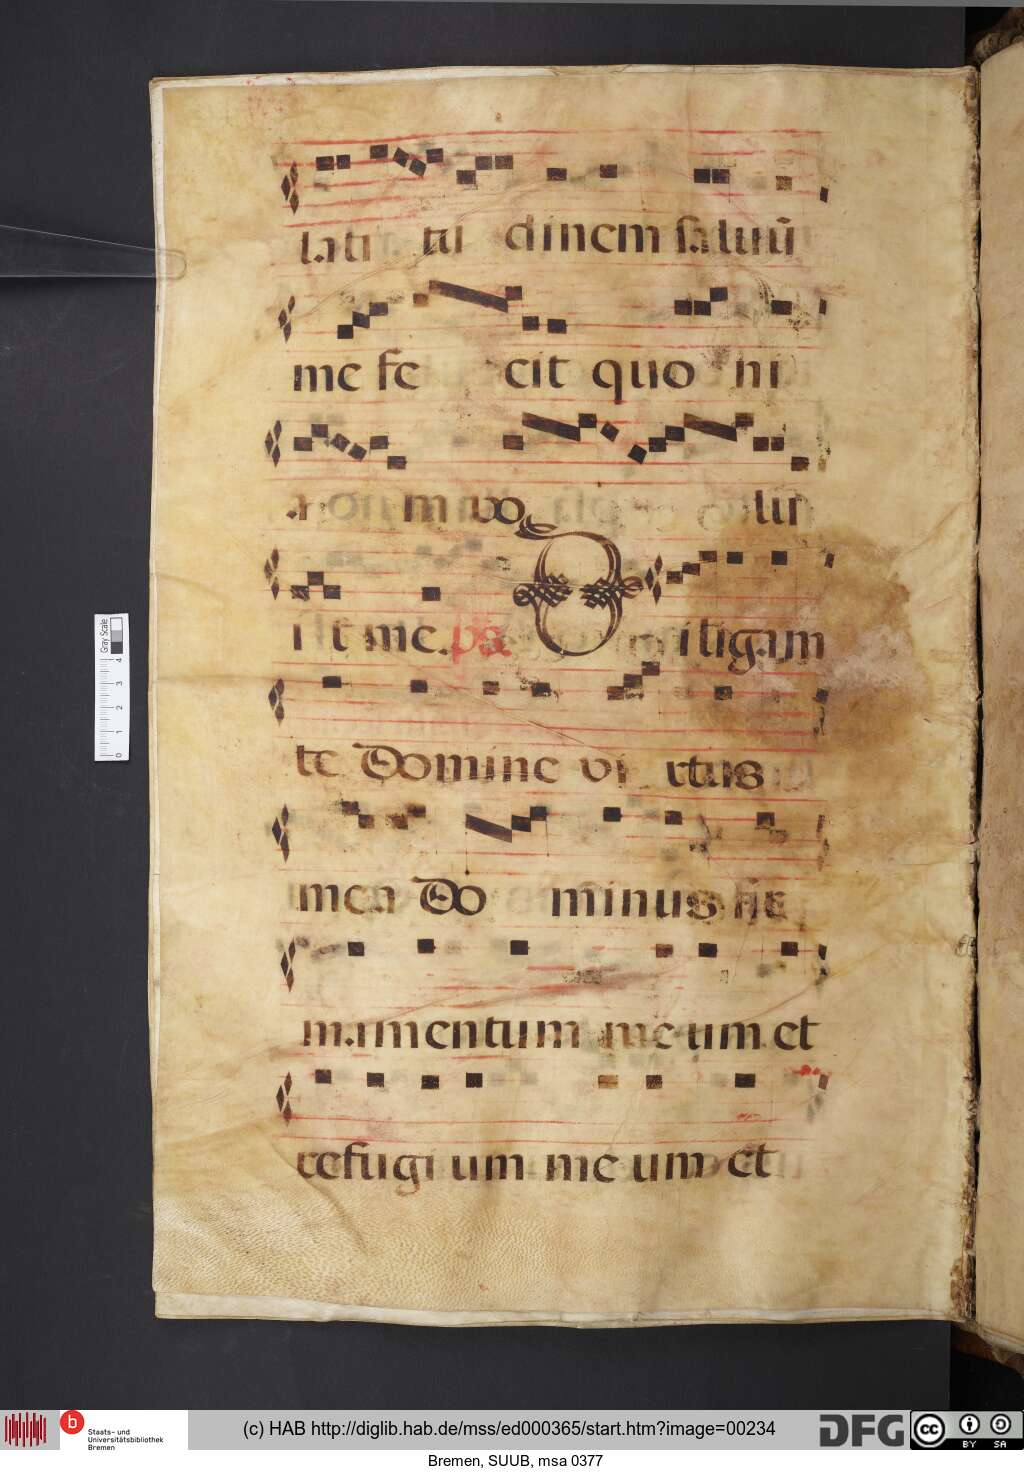 lati tu dinem saluū
me fe cit quo ni
a m vo lu
it me. ps. Diligam
te Domine vir tus
mea Do minus fir
mamentum meum et
refugi um meum et
Gray Scale
4
3
2
1
0
b
Staats- und
Universitätsbibliothek
Bremen
(c) HAB http://diglib.hab.de/mss/ed000365/start.htm?image=00234
DFG
cc BY SA
Bremen, SUUB, msa 0377